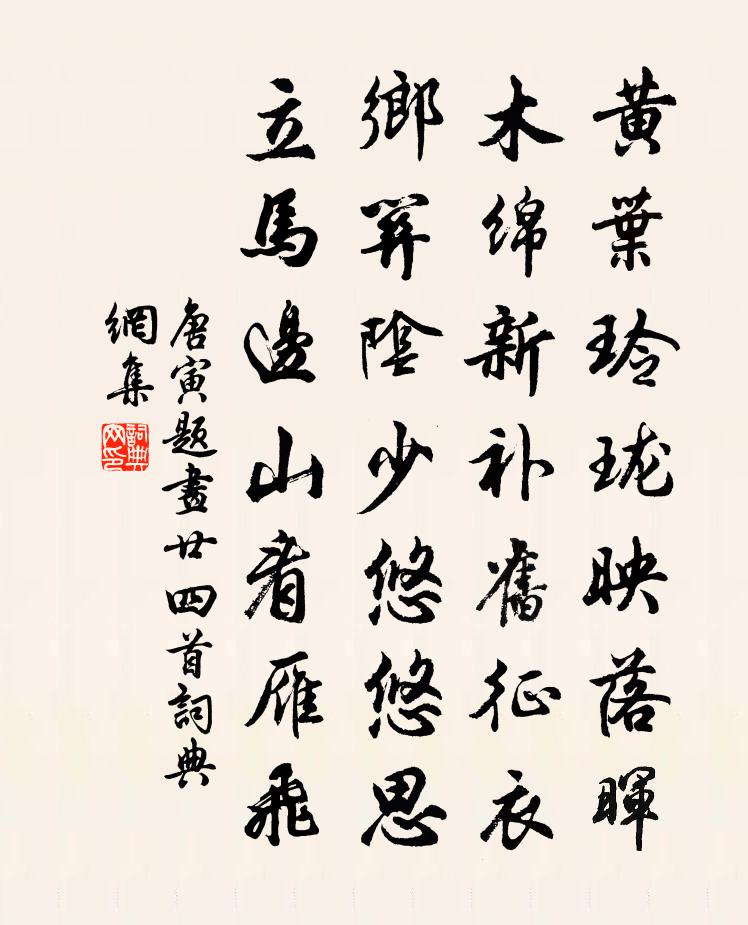 黃葉玲珑映落暉
木綿新补舊征衣
鄉關陰少悠悠思
立馬邊山看雁飛
唐寅題畫廿四首詞典
網集
詞典
网印